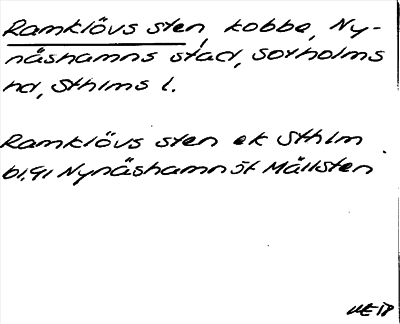 Ramklövs sten, kobbe, Ny-
nåshamns stad, Sotholms
hd, Sthlms l.
Ramklövs sten ek Sthlm
bl.91 Nynäshamn 5t Mållsten